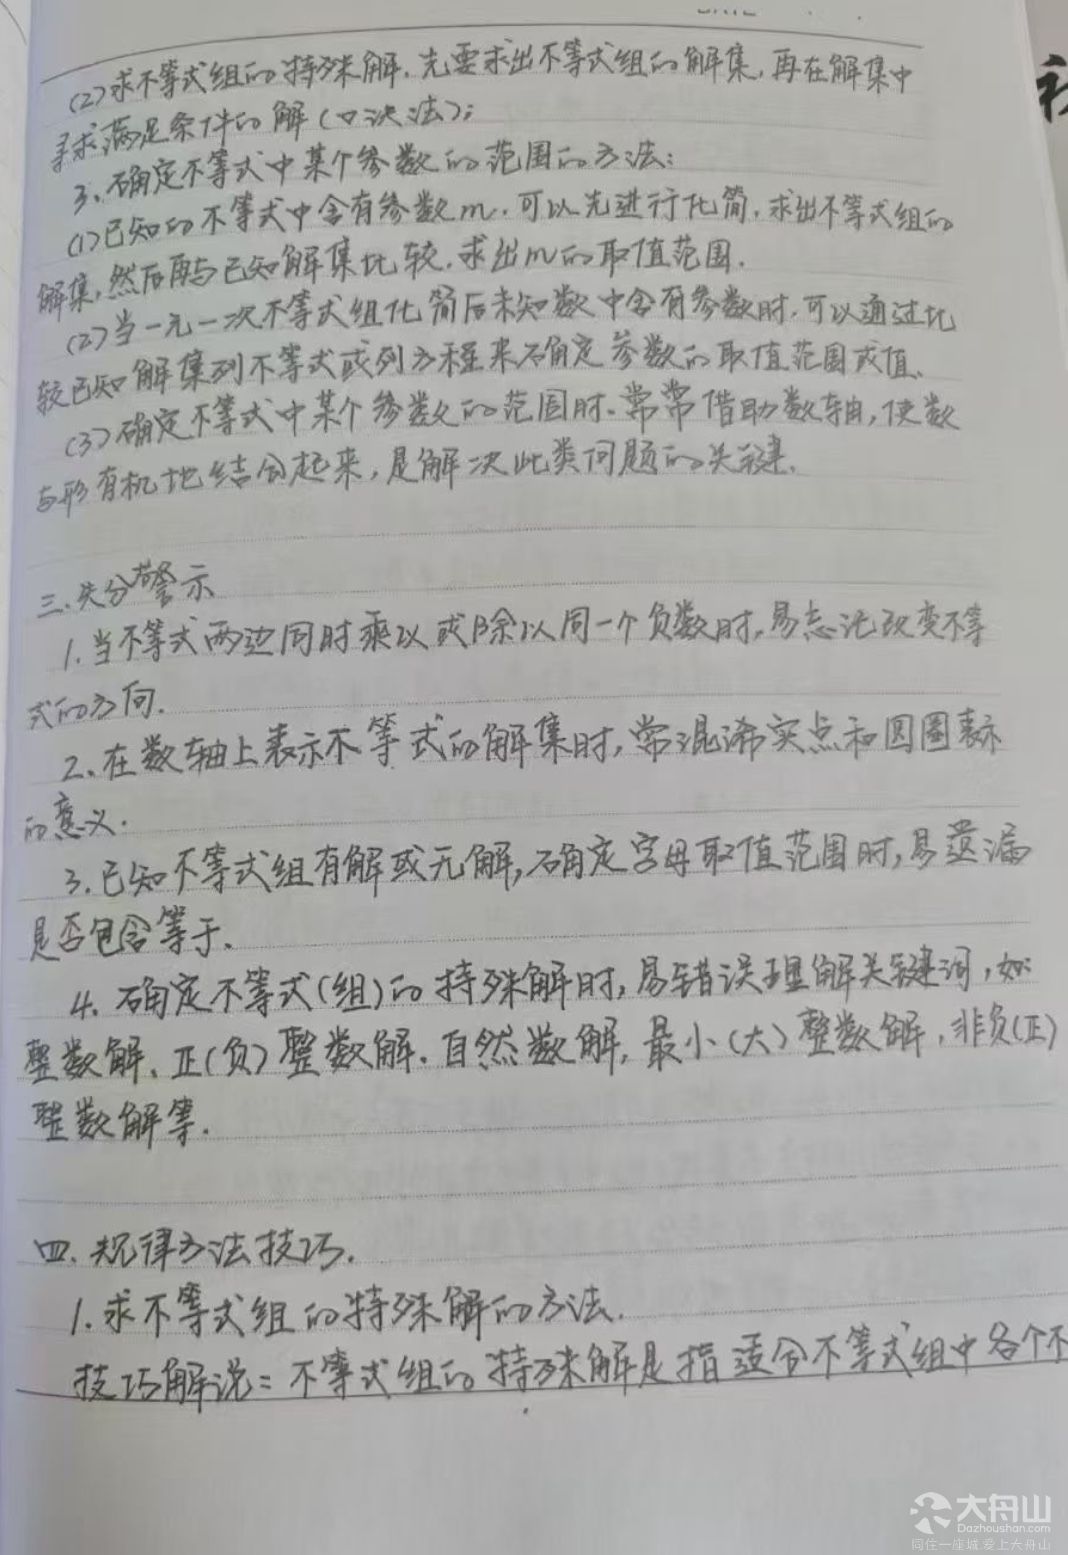 DATE
(2)求不等式组的特殊解,先要求出不等式组的解集,再在解集中
寻求满足条件的解(口决法);
3、确定不等式中某个参数的范围的方法:
(1)已知的不等式中含有参数m,可以先进行化简,求出不等式组的
解集,然后再与已知解集比较,求出m的取值范围.
(2)当一元一次不等式组化简后未知数中含有参数时,可以通过比
较已知解集列不等式或列方程来确定参数的取值范围或值、
(3)确定不等式中某个参数的范围时、常常借助数轴,使数
与形有机地结合起来,是解决此类问题的关键、
三、失分警示
1.当不等式两边同时乘以或除以同一个负数时,易忘记改变不等
式的方向.
2、在数轴上表示不等式的解集时,常混淆实点和圆圈表示
的意义.
3.已知不等式组有解或无解,确定字母取值范围时,易遗漏
是否包含等于.
4、确定不等式(组)的特殊解时,易错误理解关键词,如
整数解、正(负)整数解、自然数解,最小(大)整数解,非负(正)
整数解等.
四、规律方法技巧.
1.求不等式组的特殊解的方法.
技巧解说:不等式组的特殊解是指适合不等式组中各个不
大舟山
Dazhoushan.com
同住一座城 爱上大舟山